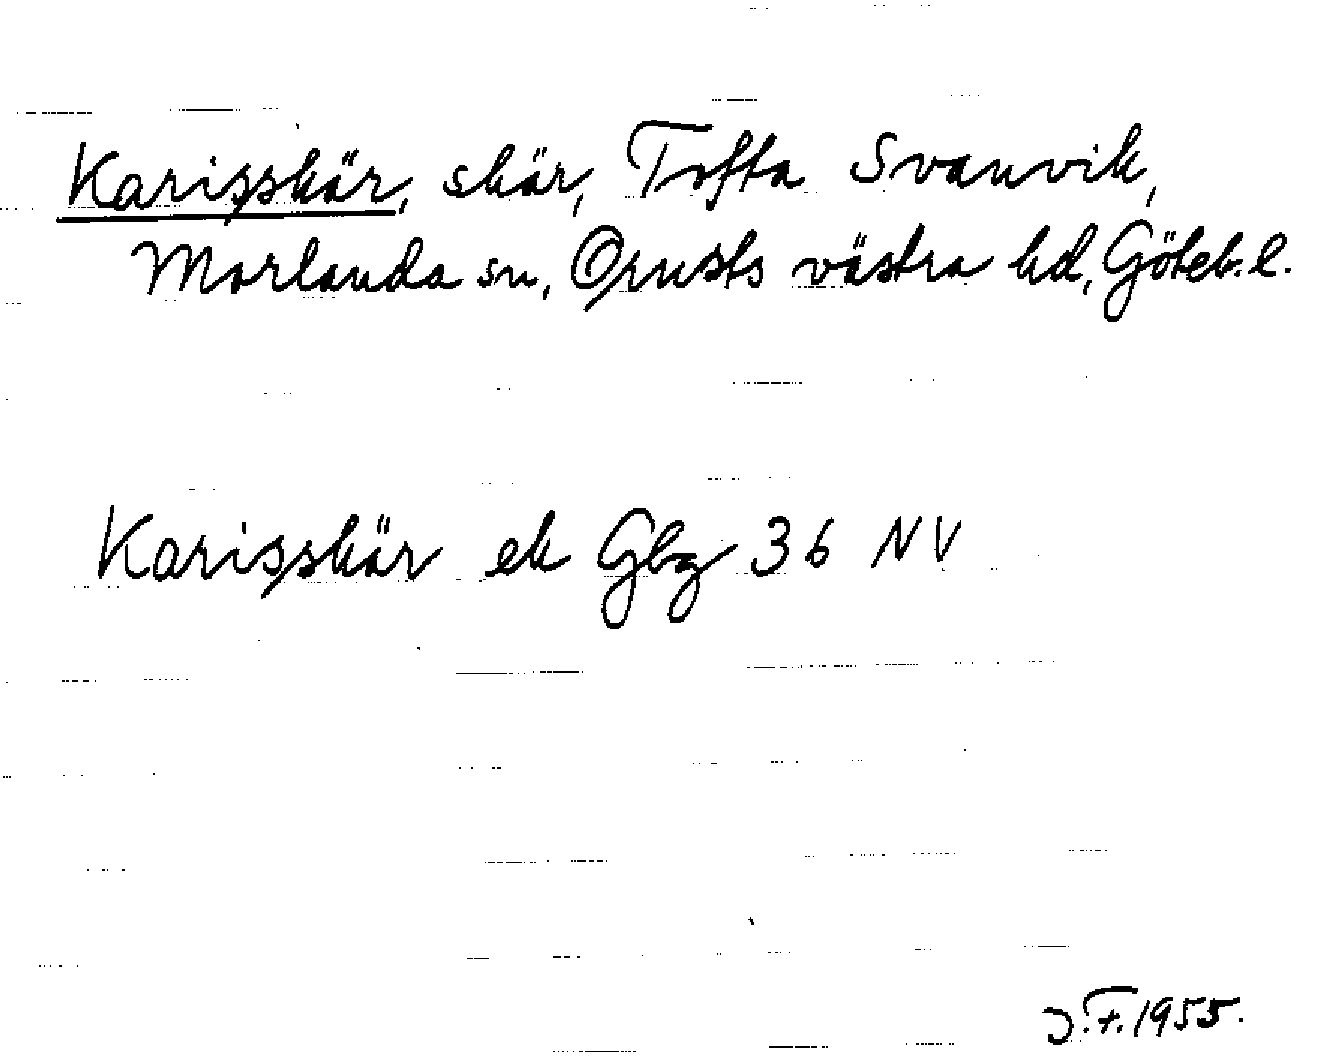 Karisskär, skär, Tofta Svanvik,
Morlanda sn, Orusts västra hd, Göteb. l.
Karisskär ek Gbg 36 NV
J.F. 1955.